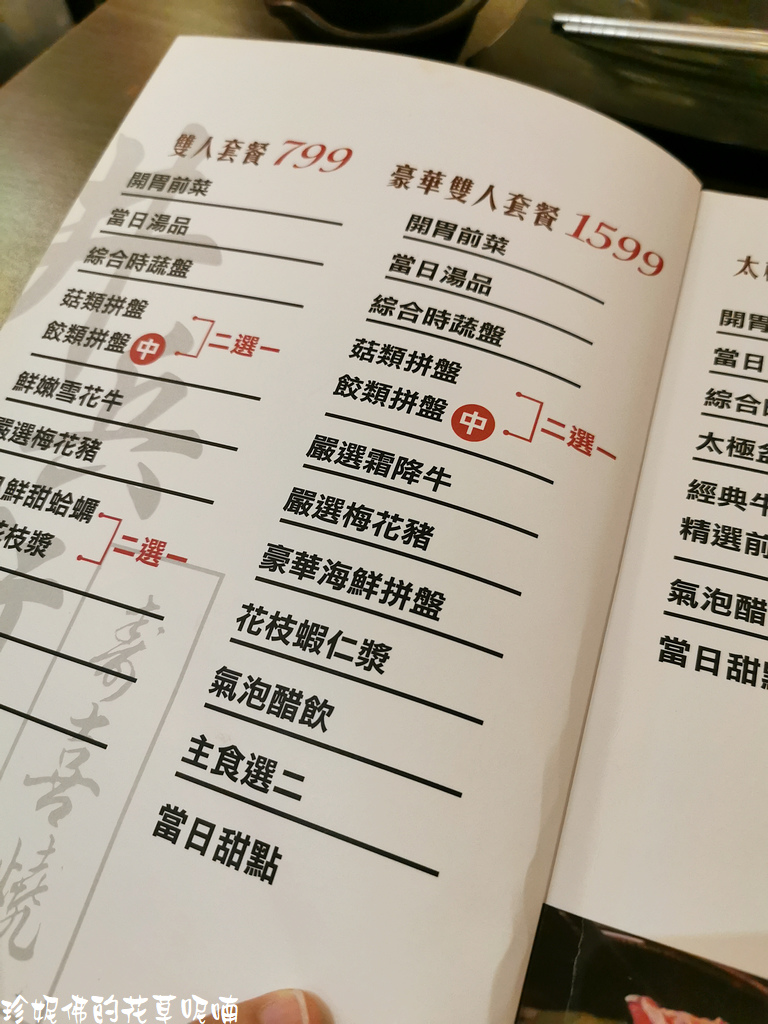 雙人套餐 799
開胃前菜
當日湯品
綜合時蔬盤
菇類拼盤
餃類拼盤 中
二選一
鮮嫩雪花牛
嚴選梅花豬
鮮甜蛤蠣
花枝漿
二選一
豪華雙人套餐 1599
開胃前菜
當日湯品
綜合時蔬盤
菇類拼盤
餃類拼盤 中
二選一
嚴選霜降牛
嚴選梅花豬
豪華海鮮拼盤
花枝蝦仁漿
氣泡醋飲
主食選二
當日甜點
太
開胃
當日
綜合
太極
經典牛
精選前
氣泡醋
當日甜點
壽喜燒
珍妮佛的花草呢喃